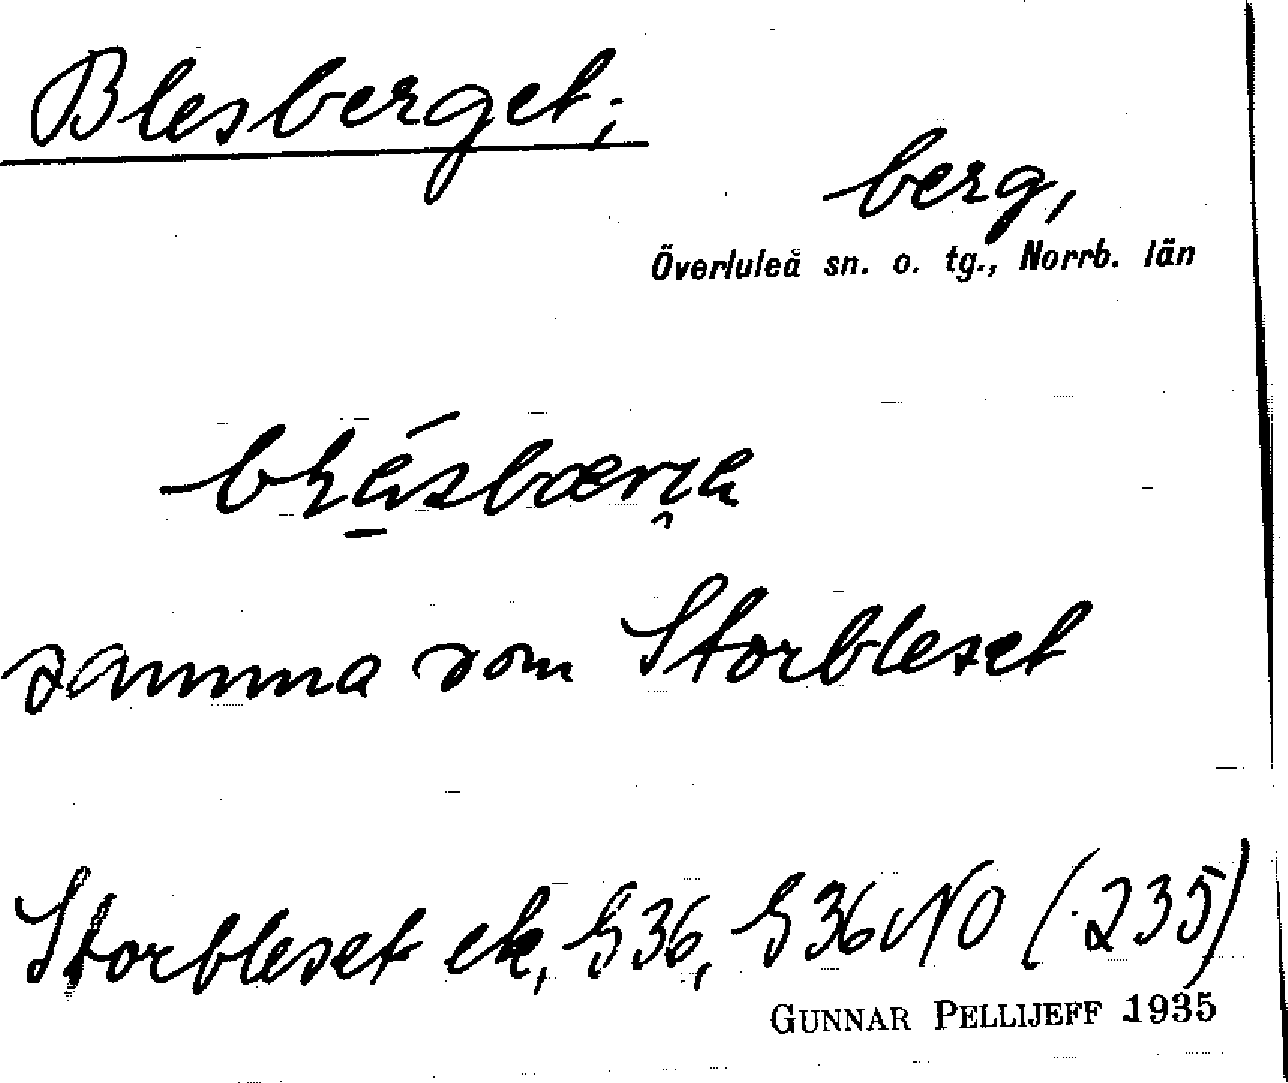 Blesberget;
berg,
Överluleå sn. o. tg., Norrb. län
samma som Storbleset
Storbleset ek, G36, G36NO (235)
GUNNAR PELLIJEFF 1935